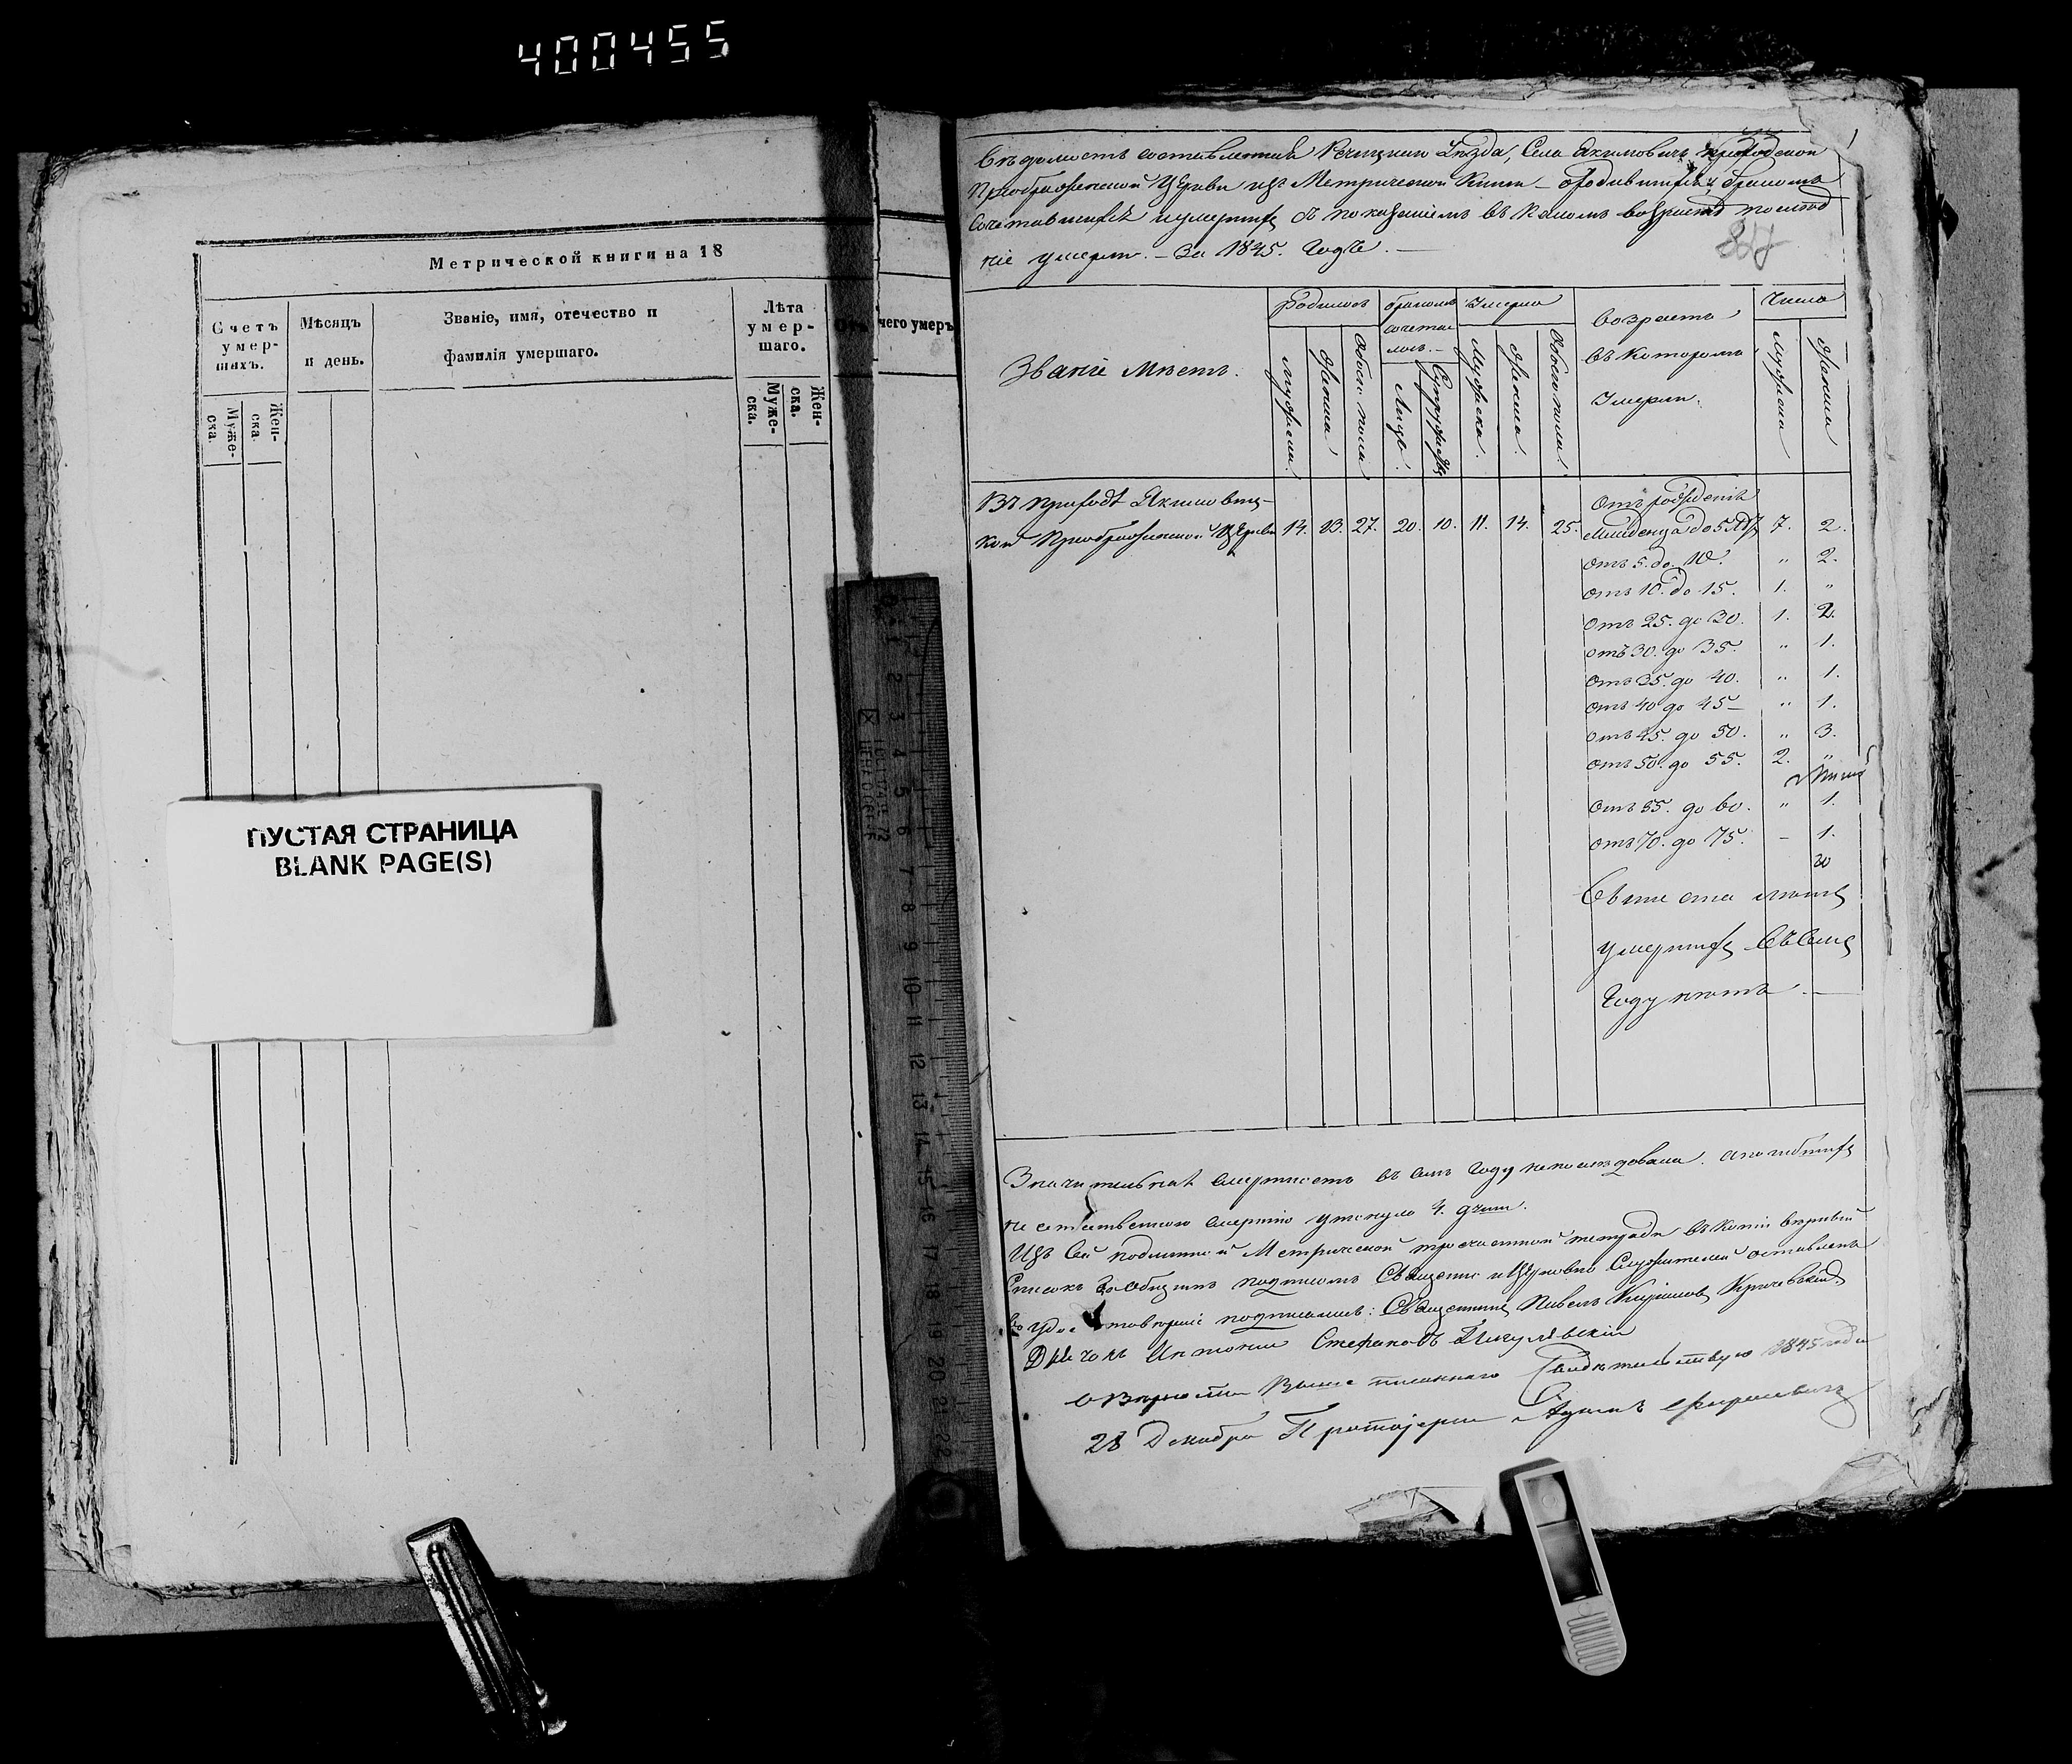 400455
Метрической книги на 18
Счетъ умер- шихъ.
Мѣсяцъ и день.
Званіе, имя, отечество и фамилія умершаго.
Лѣта умер- шаго.
чего умеръ
Муже- ска.
Жен- ска.
Муже- ска.
Жен- ска.
ПУСТАЯ СТРАНИЦА
BLANK PAGE(S)
Вѣдомость составленная Речицкаго уѣзда, Села Якимовичъ приходской
Преображенской Церкви изъ Метрической Книги о родившихся, бракомъ
сочетавшихся и умершихъ съ показаніемъ въ какомъ возрастѣ послѣд
ніе умерли. – За 1845. Годъ. –
Званіе Мѣстъ.
Родилось
бракомъ сочета лось. –
Умерло
Возрастъ въ которомъ Умерли.
Число
мужеска
женска
Обоего пола
Лицъ.
Супружествъ
Мужеска.
женска.
Обоего пола.
мужеска
женска
Въ приходѣ Якимовиц-
кой Преображенской Церкви 14. 13. 27. 20. 10. 11. 14. 25.
Отъ рожденія
младенца до 5 лѣтъ 7. 2.
отъ 5. до 10. „ 2.
отъ 10. до 15. 1. „
отъ 25. до 30. 1. 2.
отъ 30. до 35. „ 1.
отъ 35. до 40. „ 1.
отъ 40 до 45 – „ 1.
отъ 45. до 50. „ 3.
отъ 50. до 55. 2. „
отъ 55. до 60. „ 1.
отъ 70. до 75. – 1.
Свыше ста лѣтъ
умершихъ въ семъ
Году нѣтъ –
Значительная смертность въ семъ Году не послѣдовала. а погибшихъ
не естественною смертію утонуло 1. душ.
Изъ сей подлинной Метрической тетради въ копіи вѣрный
Списокъ за общимъ подписомъ Священно и Церковно Служителей оставленъ
подписались: Священникъ Павелъ Кириловъ
Дьячокъ Антоній Стефановъ Пигулевскій
О Вѣрности Выше писаннаго Свидѣтельствую 1845 года
28 Декабря Протоіерей